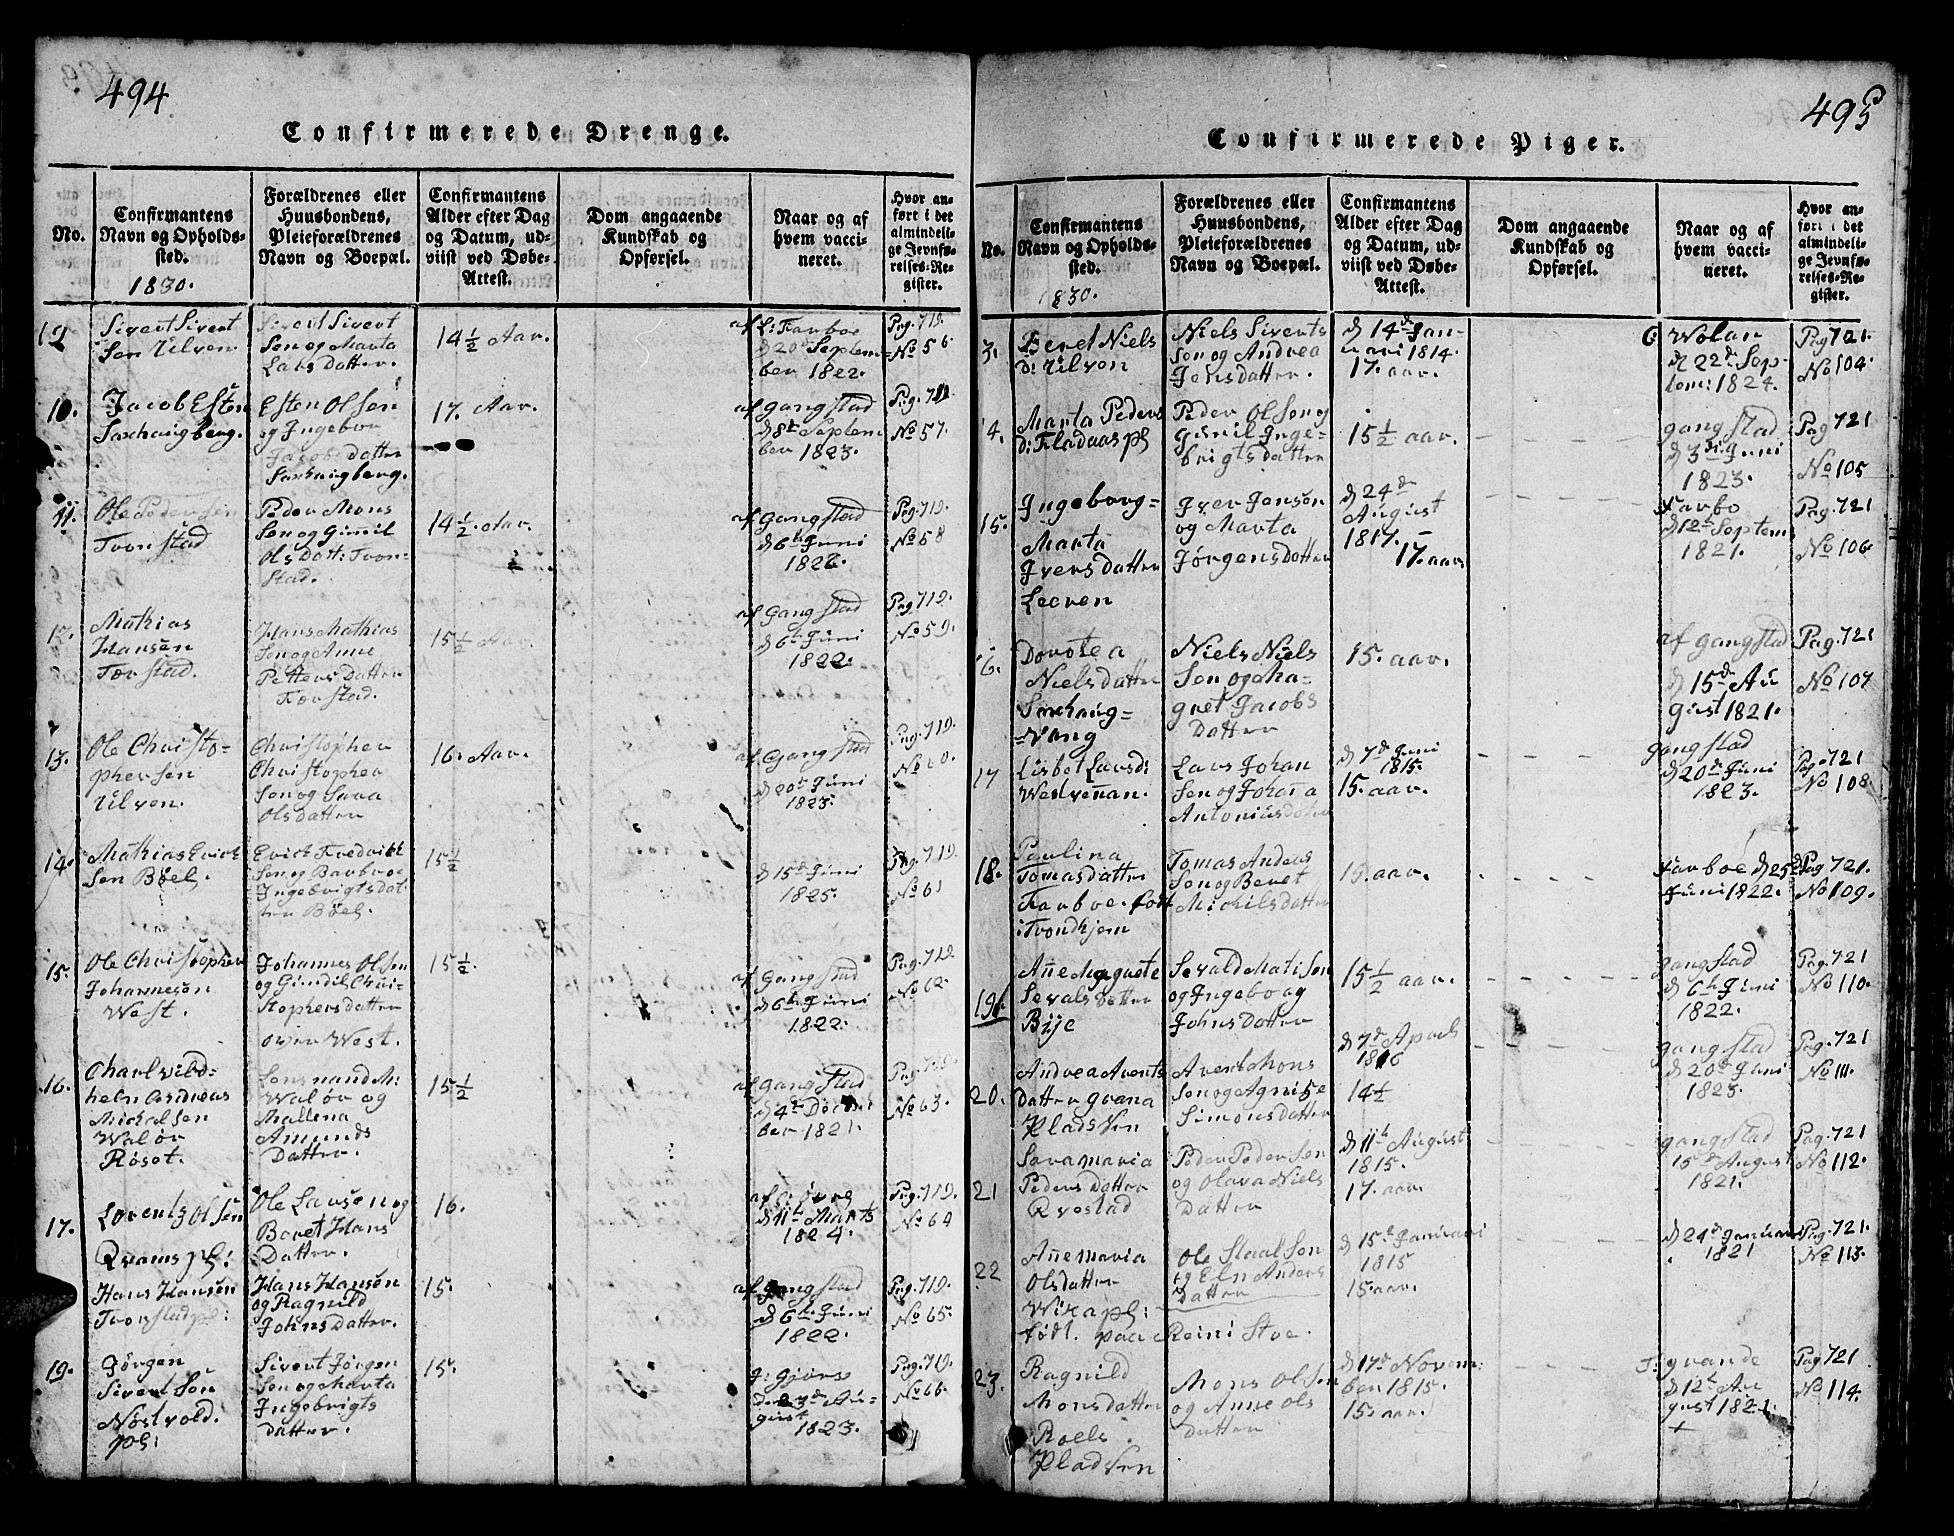 494
Confirmerede Drenge.
No.
Confirmantens
Navn og Opholds-
sted.
1830.
Forældrenes eller
Huusbondens,
Pleieforældrenes
Navn og Boepæl.
Confirmantens
Alder efter Dag
og Datum, ud-
viist ved Døbe-
Attest.
Dom angaaende
Kundskab og
Opførsel.
Naar og af
hvem vacci-
neret.
Hvor an-
ført i det
almindeli-
ge Jevnfø-
relses-Re-
gister.
Sivert Sivert
Sen Ulven
Sivert Sivert
Sen og Marta
Lars Datter.
14 1/2 Aar.
af L: Farboe
d 20de Septem-
ber 1822.
Pag. 719.
No 56.
10.
Jacob Esten
Saxhaugberg.
Esten Olsen
og Ingebor
Jacobs Datter
Saxhaugberg.
17. Aar.
af Gangstad
d 8de Septem
ber 1823.
Pag. 719.
No 57.
11.
Ole Peder Sen
Tronstad
Peder Mons
Sen og Gunil
Ols Dott: Tron-
stad.
14 1/2 Aar.
af Gangstad
d 6te Juni
1822.
Pag. 719.
No 58
12.
Mathias
Hansen
Tørstad.
Hans Mathias
Sen og Anne
Petters Datter
Tørstad.
15 1/2 Aar.
af Gangstad
d 6te Juni
1822.
Pag 719.
No 59.
13.
Ole Christo-
phersen
Ulven.
Christopher
Christopher
Sen og Sara
Olsdatter
16. Aar.
af Gangstad
d 20de Juni
1823.
Pag. 719.
No 60.
14.
Mathias Erick
Sen Bøel.
Erick Fredrick
Sen og Barbroe
Ingebrigtsdat
ter Bøel.
15 1/2
d 15de Juni
1825.
Pag. 719.
No 61
15.
Ole Christopher
Johannesen
West.
Johannes Olsen
og Gundil Chri-
stophersdatter
over West.
15 1/2.
af Gangstad
d 6te Juni
1822.
Pag. 719.
No 62.
16.
Charl vild-
helm Andreas
Michelsen
Waløv
Røset.
Waløv og
Mallena
Amunds
Datter.
15 1/2
af Gangstad
d 4de Decem
ber 1821.
Pag. 719.
No 63.
17.
Lorentz Olsen
Qvams pl:
Ole Larsen og
Beret Hans
Datter.
16.
d 11te Marts
1824.
Pag. 719.
No 64
Hans Hansen
Tronstad pl:
Hans Hansen
og Ragnild
Johnsdatter.
15.
af Gangstad
d 6te Juni
1822.
Pag. 719.
No 65.
19.
Jørgen
Sivert Sen
Nøstvold.
pl:
Sivert Jørgen
Sen og Marta
Ingebrigts
datter.
15.
den 3de Au-
gust
1823.
Pag. 719.
No 66.
495
Confirmerede Piger.
No.
Confirmantens
Navn og Opholds-
sted.
1830.
Forældrenes eller
Huusbondens,
Pleieforældrenes
Navn og Boepæl.
Confirmantens
Alder efter Dag
og Datum, ud-
viist ved Døbe-
Attest.
Dom angaaende
Kundskab og
Opførsel.
Naar og af
hvem vacci-
neret.
Hvor an-
ført i det
almindeli-
ge Jevnfø-
relses-Re-
gister.
3.
Beret Niels
d: Ulven
Niels Siverts
Sen og Andrea
Jensdatter.
d 14de Jan-
uari 1814.
17. aar.
Wolan
d 22de Sep-
tem: 1824.
Pag 721.
No 104.
4.
Marta Peders
d: Fladaas pl
Peder Olsen og
Gunil Inge-
brigtsdatter
15 1/2 aar.
Gangstad
d 3de Juni
1823.
Pag 721
No 105
15.
Ingeborg=
Marta
Iversdatter
Leeren
Iver Jensen
og Marta
Jørgensdatter
d 24de
August
1817.
17. aar.
Farbo
d 12te Septem
1821.
Pag. 721
No 106.
6.
Dorotea
Nielsdatter
Saxhaug=
=Vang
Niels Niels
Sen og Ma-
gret Jacobs
Datter
15. aar.
af Gangstad
d 15de Au
gust 1821.
Pag. 721
No 107
17
Lisbet Larsd:
Lars Johan
Sen og Johana
Antoniusdater
d 7de Juni
1815.
15. aar.
Gangstad
d 20de Juni
1823.
Pag. 721
No 108.
18.
Paulina
Tomasdatter
Farboe. født
i Trondhjem
Tomas Anders
Sen og Beret
Michilsdatter
15. aar.
Farboe d 25de
Juni 1822.
Pag 721.
No 109.
19.
Ane Magrete
Sevalsdatter
Bije
Sevald Mati Sen
og Ingeborg
Johns Datter
15 1/2 aar.
Gangstad
d 6te Juni
1822.
Pag. 721
No 110.
20.
Andrea Arents
Datter Grana
Pladsen
Arent Mons
Sen og Agnise
Simonsdatter
d 7de April
1816
14 1/2
Gangstad
d 20de Juni
1823.
Pag. 721
No 111.
21
Sara Maria
Peders datter
Qvestad
Peder Peder Sen
og Olava Niels
Datter
d 11te August
1815.
17. aar.
Gangstad
15de August
1821.
Pag. 721
No 112.
22
Ane Maria
Olsdatter
Wixa pl:
født. paa Reins Stoe.
Ole Staal Sen
og Eln Anders
Datter
d 15de Januari
1815
15. aar.
d 24de Januari
1821
Pag. 721.
No 113.
23.
Ragnild
Monsdatter
Roels
Pladsen
Mons Olsen
og Anne Ols
datter
d 17de Novem
ber 1815.
15. aar.
Grande
d 12te Au
gust 1821.
+
Pag 721
No 114.